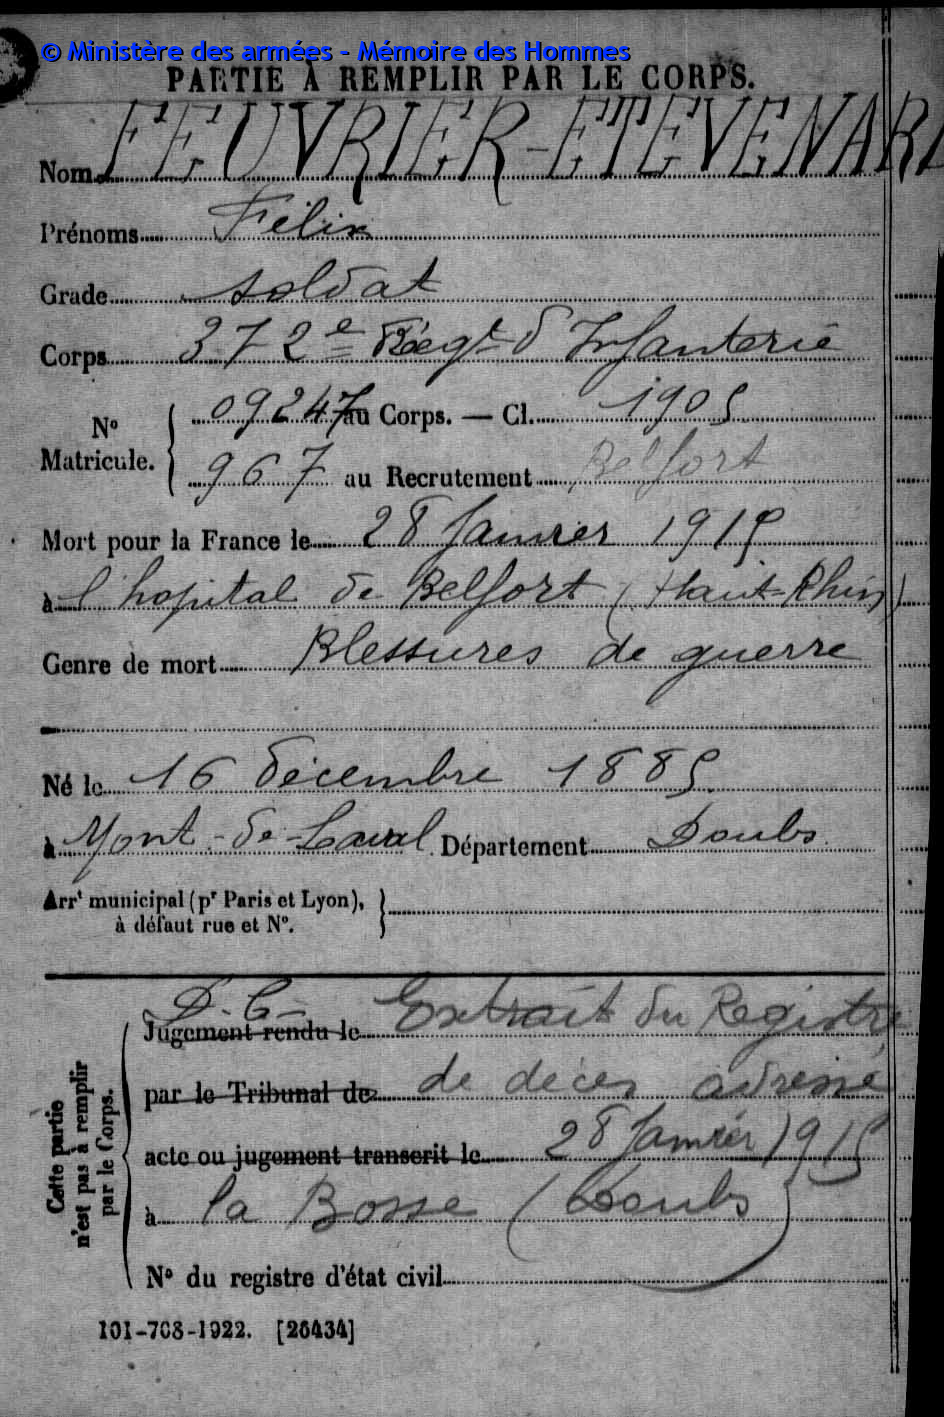 © Ministère des armées - Mémoire des Hommes
PARTIE À REMPLIR PAR LE CORPS.
Nom FEUVRIER-ETEVENARD
Prénoms Félix
Grade soldat
Corps 372e Régt d'Infanterie
N° Matricule. 09247 au Corps. — Cl. 1905
967 au Recrutement Belfort
Mort pour la France le 28 Janvier 1915
à l'hopital de Belfort (Haut-Rhin)
Genre de mort Blessures de guerre
Né le 16 décembre 1885
à Mont-de-Laval Département Doubs
Arrt municipal (pr Paris et Lyon),
à défaut rue et N°.
Cette partie n'est pas à remplir par le Corps.
D.C- Extrait du Registre
Jugement rendu le
par le Tribunal de de décès adressé
acte ou jugement transcrit le 28 Janvier 1915
à la Bosse (Doubs)
N° du registre d'état civil
101-708-1922. [26434]